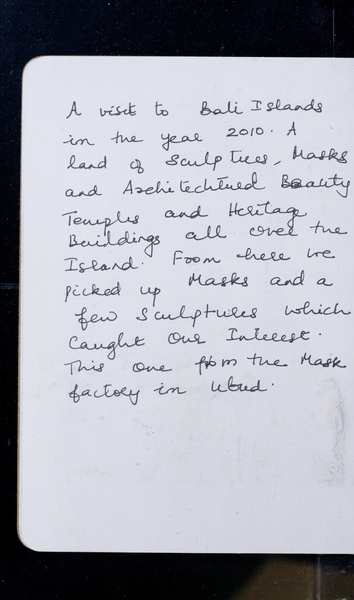 A visit to Bali Islands
in the year 2010. A
land of Sculptures, Masks
and Architechtured Beauty
Temples and Heritage
Buildings all over the
Island. From here we
picked up Masks and a
few Sculptures which
caught Our Interest.
This one from the Mask
factory in Ubud.